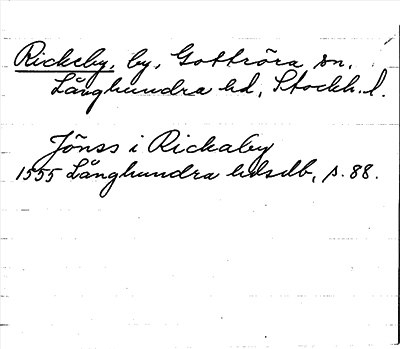 Rickeby, by, Gottröra sn,
Långhundra hd, Stockh. l.
Jönss i Rickaby
1555 Långhundra hdsdb, s. 88.